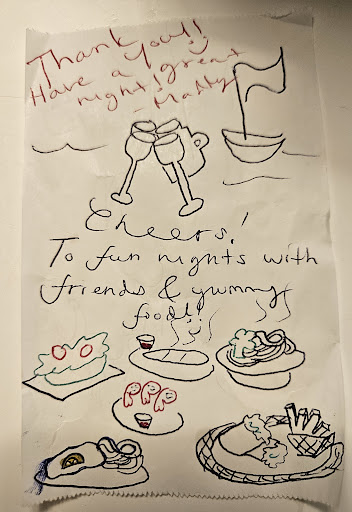 Thank You!!
Have a great
night!
Matty
Cheers!
To fun nights with
friends & yummy
food!